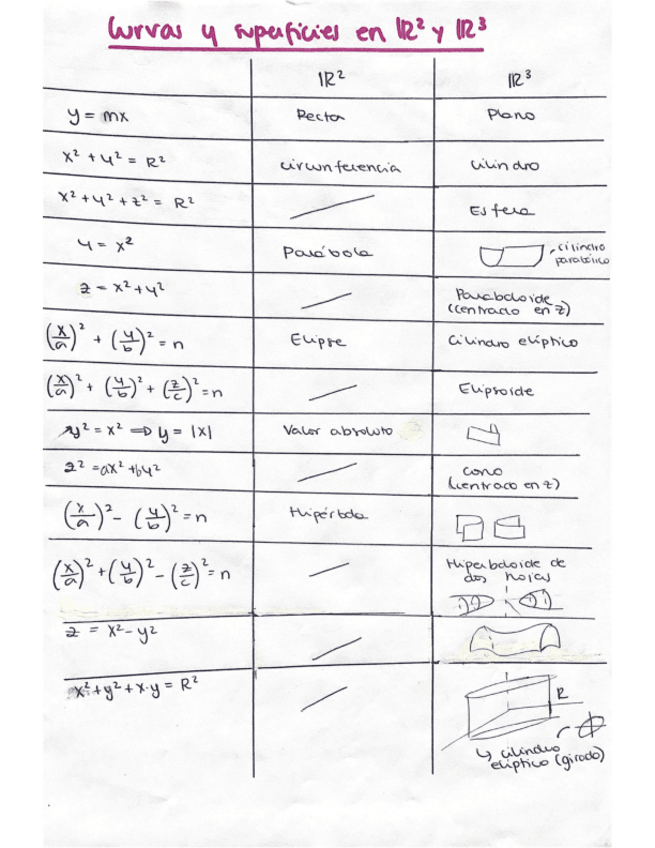 Curvas y superficies en IR² y IR³
IR² IR³
y = mx Recta Plano
x² + y² = R² circunferencia Cilindro
x² + y² + z² = R² Esfera
y = x² Parábola cilindro
parabólico
z = x² + y² Paraboloide
(centrado en z)
(x/a)² + (y/b)² = n Elipse Cilindro elíptico
(x/a)² + (y/b)² + (z/c)² = n Elipsoide
y² = x² ⇒ y = |x| Valor absoluto
z² = ax² + by² cono
(centrado en z)
(x/a)² - (y/b)² = n Hipérbola
(x/a)² + (y/b)² - (z/c)² = n Hiperboloide de
dos hojas
z = x² - y²
x² + y² + x·y = R² R
↳ cilindro
elíptico (girado)